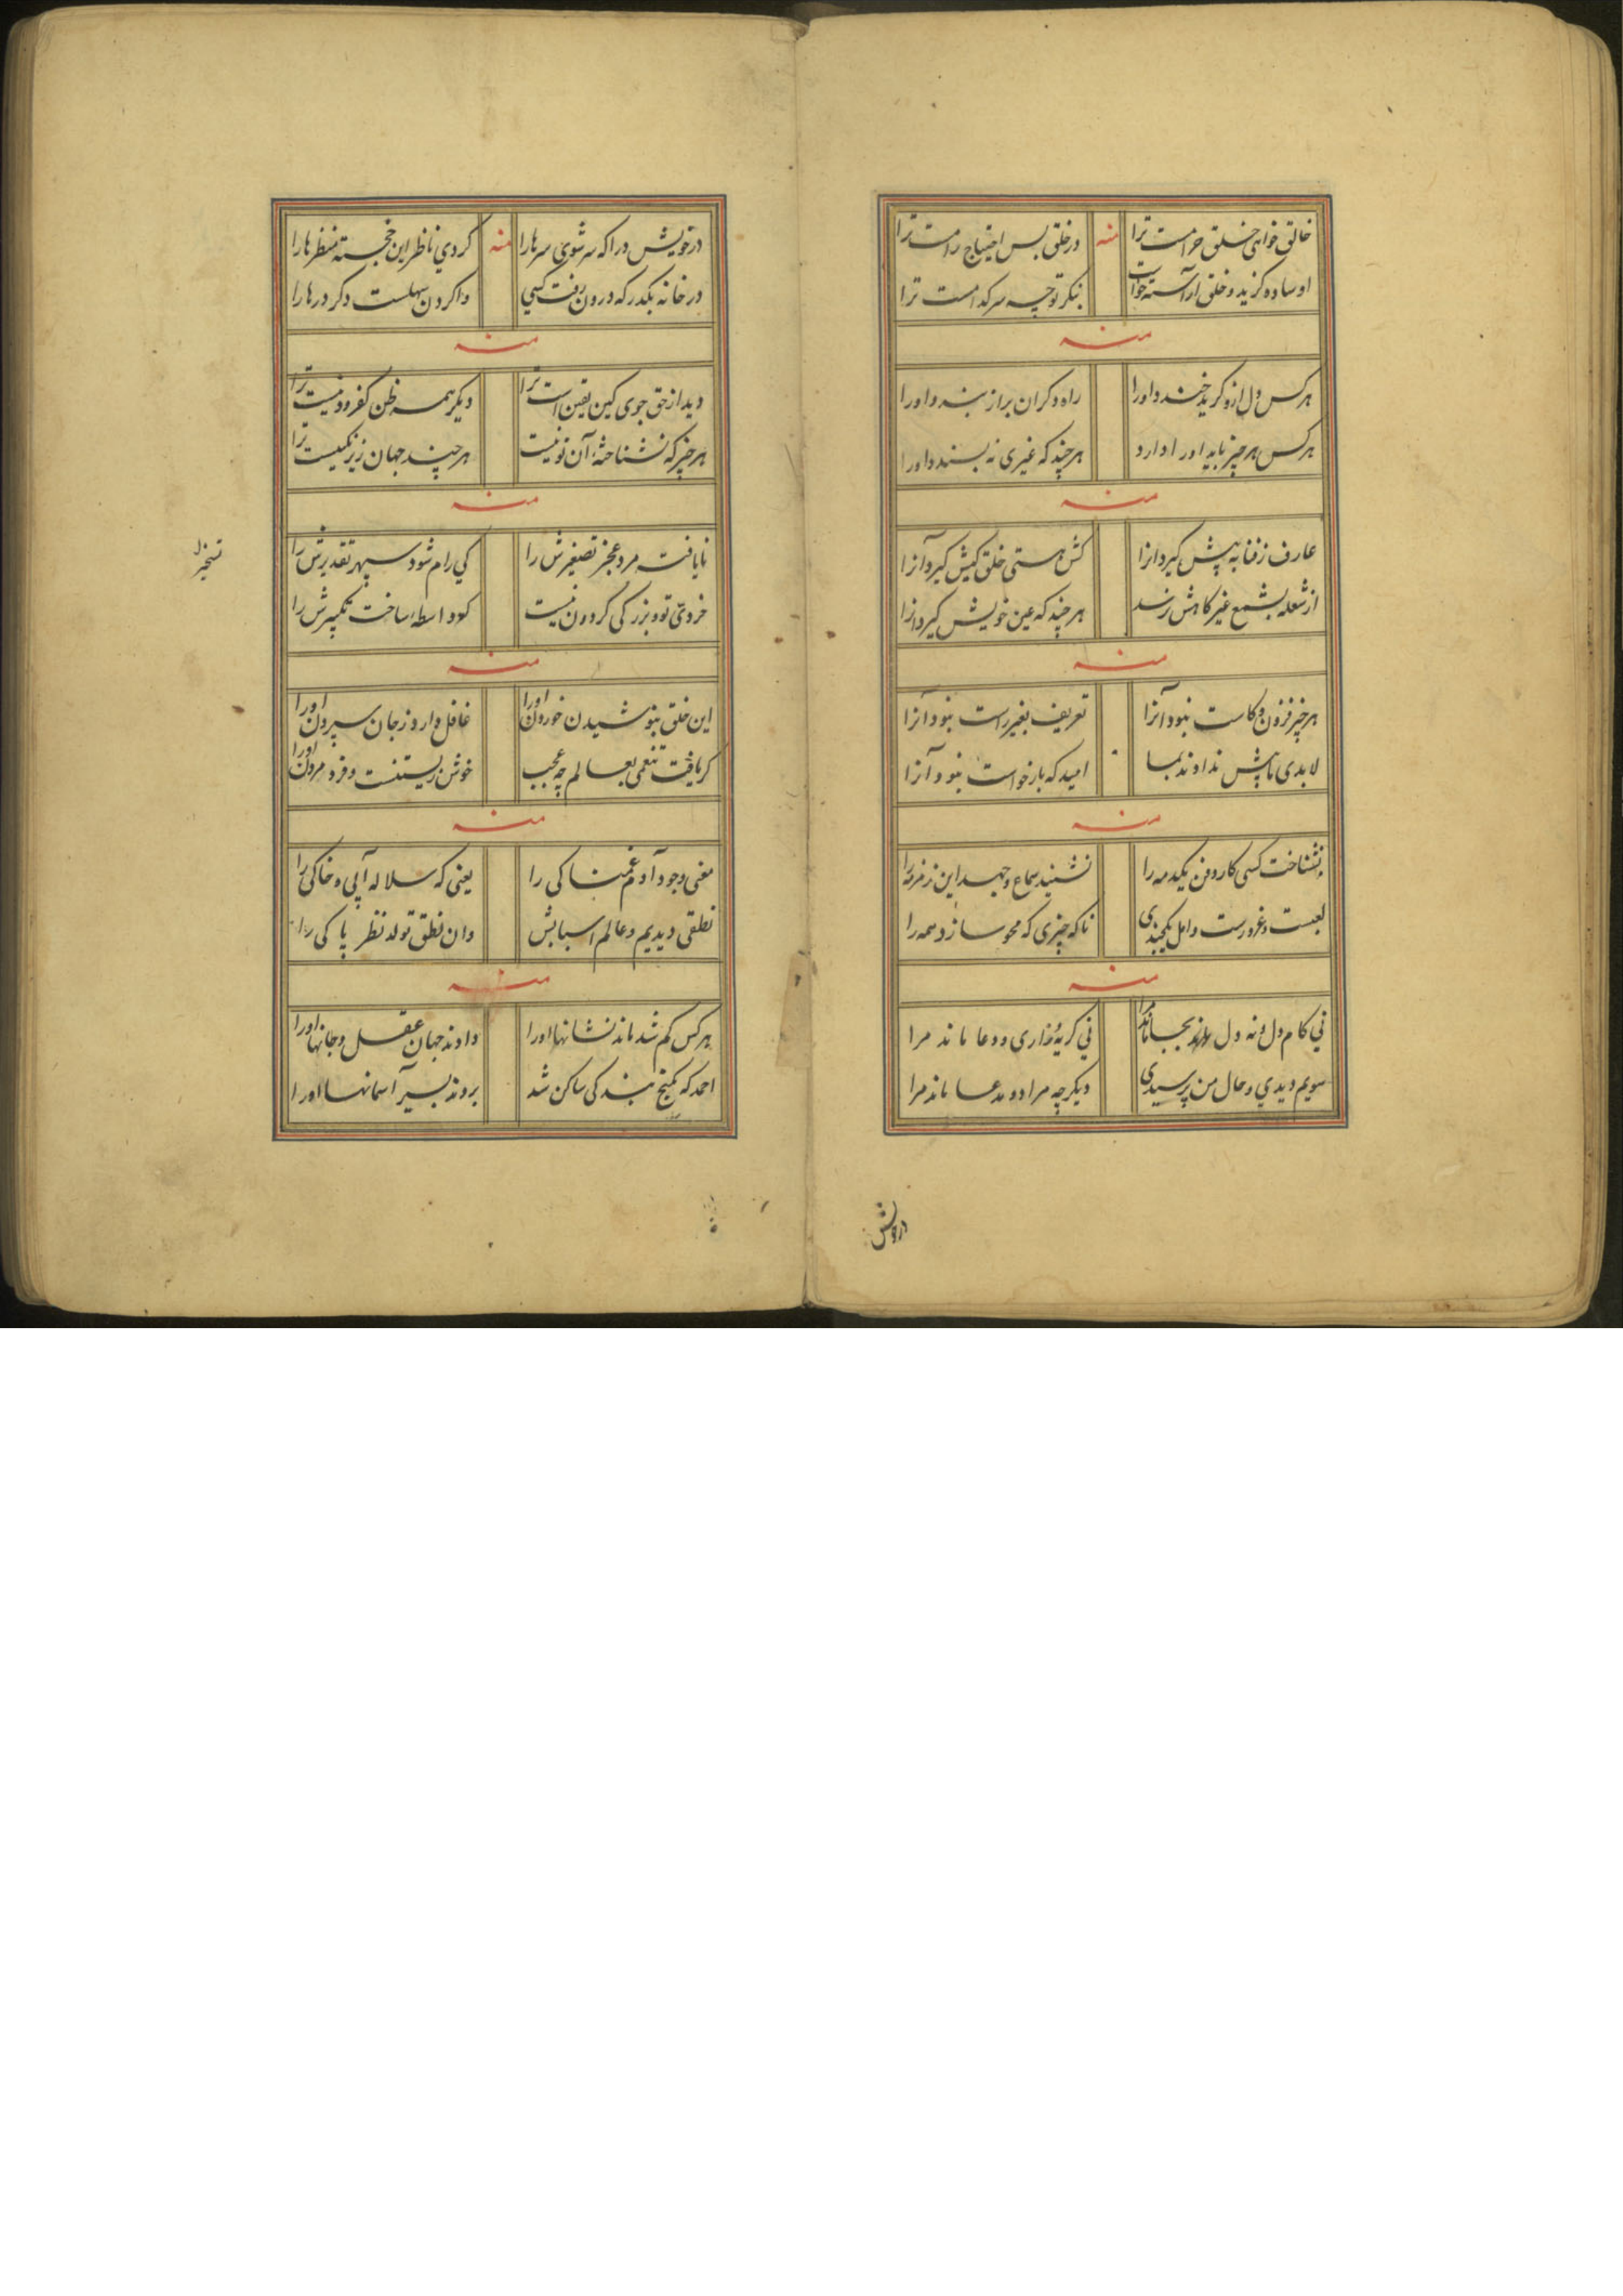 خالق خواهی خلق حرامست ترا
منه
در خلق بس احتیاج رامست ترا
او ساده گزید و خلق آراسته خواست
بنگر تو چه سر کدامست ترا
منه
هرکس دل ازو گرید خندد اورا
راه دگران براز بندد اورا
هرکس هر چیز باید اورا دارد
هرچند که غیری نه پسندد اورا
منه
عارف ز فنا به پیش گیرد آنرا
کش هستی خلق کیش گیرد آنرا
از شعله بشمع غیر کاهش نرسد
هرچند که عین خویش گیرد آنرا
منه
هرچیز فزون و کاست نبود آنرا
تعریف بغیر راست نبود آنرا
لابدی ما پیش ندادند بما
امید که بازخواست نبود آنرا
منه
نشناخت کسی کار و فن یکدمه را
نشنید سماع وجهد این زمزمه را
لعبست و غرورست و امل یکچندی
تا که چیزی که محو سازد همه را
منه
نی کام دل و نه دل بجا ماند مرا
نی گریه و زاری و دعا ماند مرا
سویم دیدی و حال من پرسیدی
دیگر چه مراد و مدعا ماند مرا
درخویش
درخویش درا که سر شوی سرها را
منه
کردی ناظر این خجسته منظرها را
در خانه بگذر که درون رفت کسی
واکردن سهلست دگر درها را
منه
دید از حق جوی کین یقین است ترا
دیگر همه ظن کفر و دینست ترا
هرچیز که نشناختهٔ آن تو نیست
هرچند جهان زیر نگینست ترا
منه
نایافته مرد عجز تصغیرش را
کی رام شود سپهر تقدیرش را
تسخیر
خردی تو و بزرگی گردون نیست
کو واسطه ساخت تکبیرش را
منه
این خلق بنوشیدن خوردن اورا
غافل دارد ز جان سپردن اورا
گر یافت تنعمی بعالم چه عجب
خوش زیستنست و فرد مردن اورا
منه
معنی وجود آدم غمناکی را
یعنی که سلاله آبی و خاکی را
نطقی دیدیم و عالم اسبابش
وان نطق تولد نظر پاکی را
منه
هرکس گم شد ماند نشانها اورا
دادند جهان عقل و جانها اورا
احمد که بکنج بندگی ساکن شد
بردند بسیر آسمانها اورا